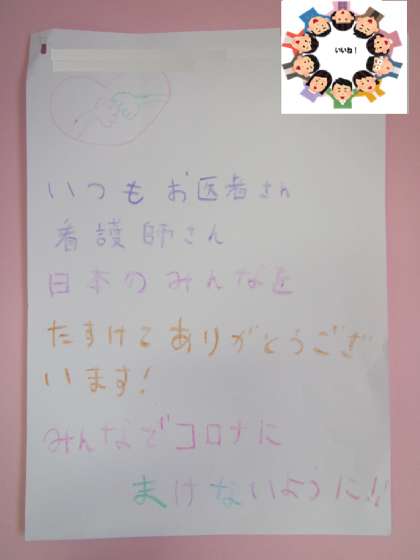 いいね！
いつもお医者さん
看護師さん
日本のみんなを
たすけてありがとうござ
います！
みんなでコロナに
まけないように！！